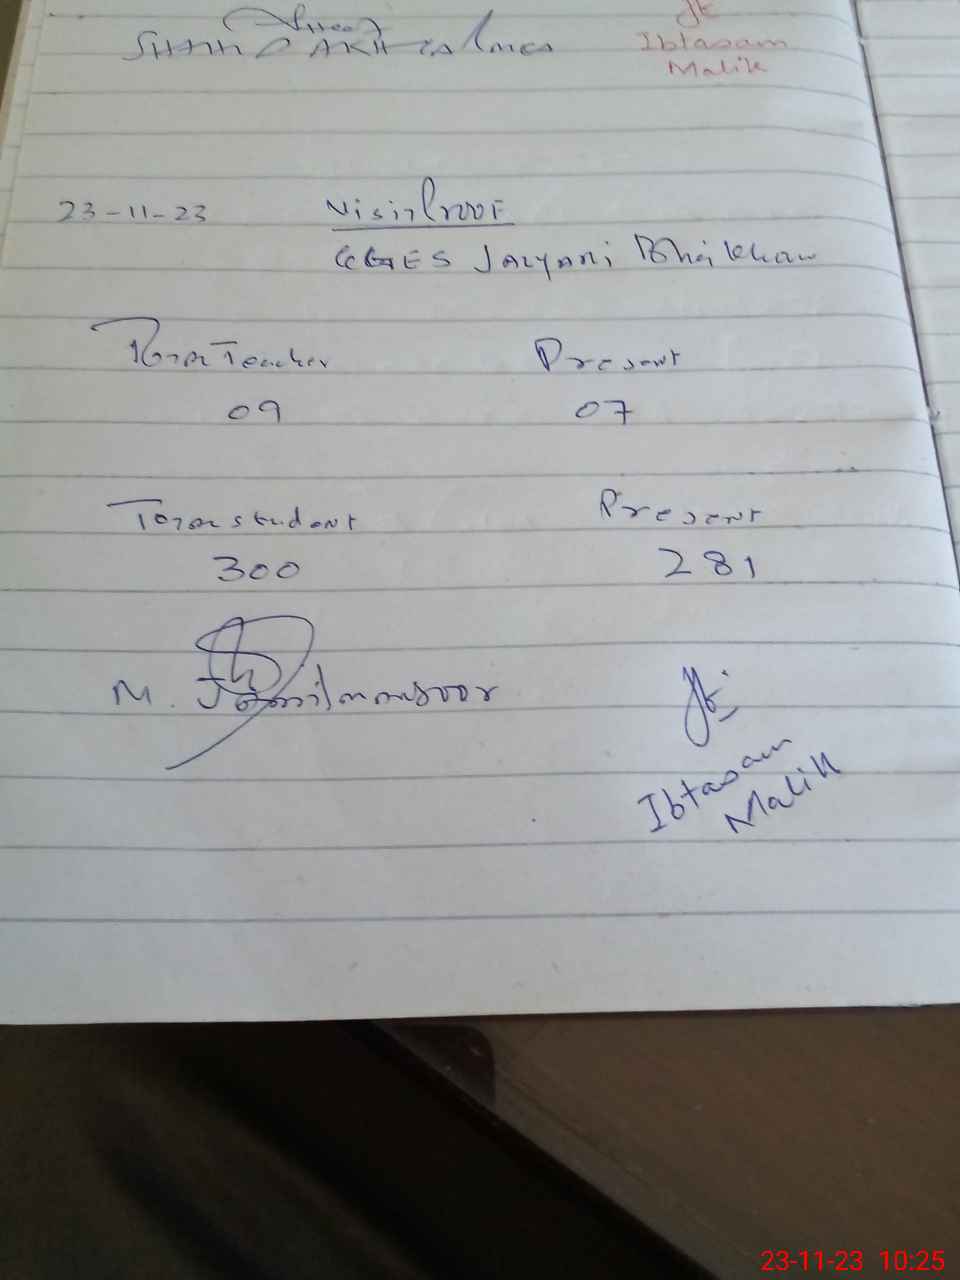 Ibtasam
Malik
23-11-23 Visit Proof
GGES Jalyari Bhai Khan
Total Teacher Present
09 07
Total student Present
300 281
M. Jamil mansoor
Ibtasam
Malik
23-11-23 10:25